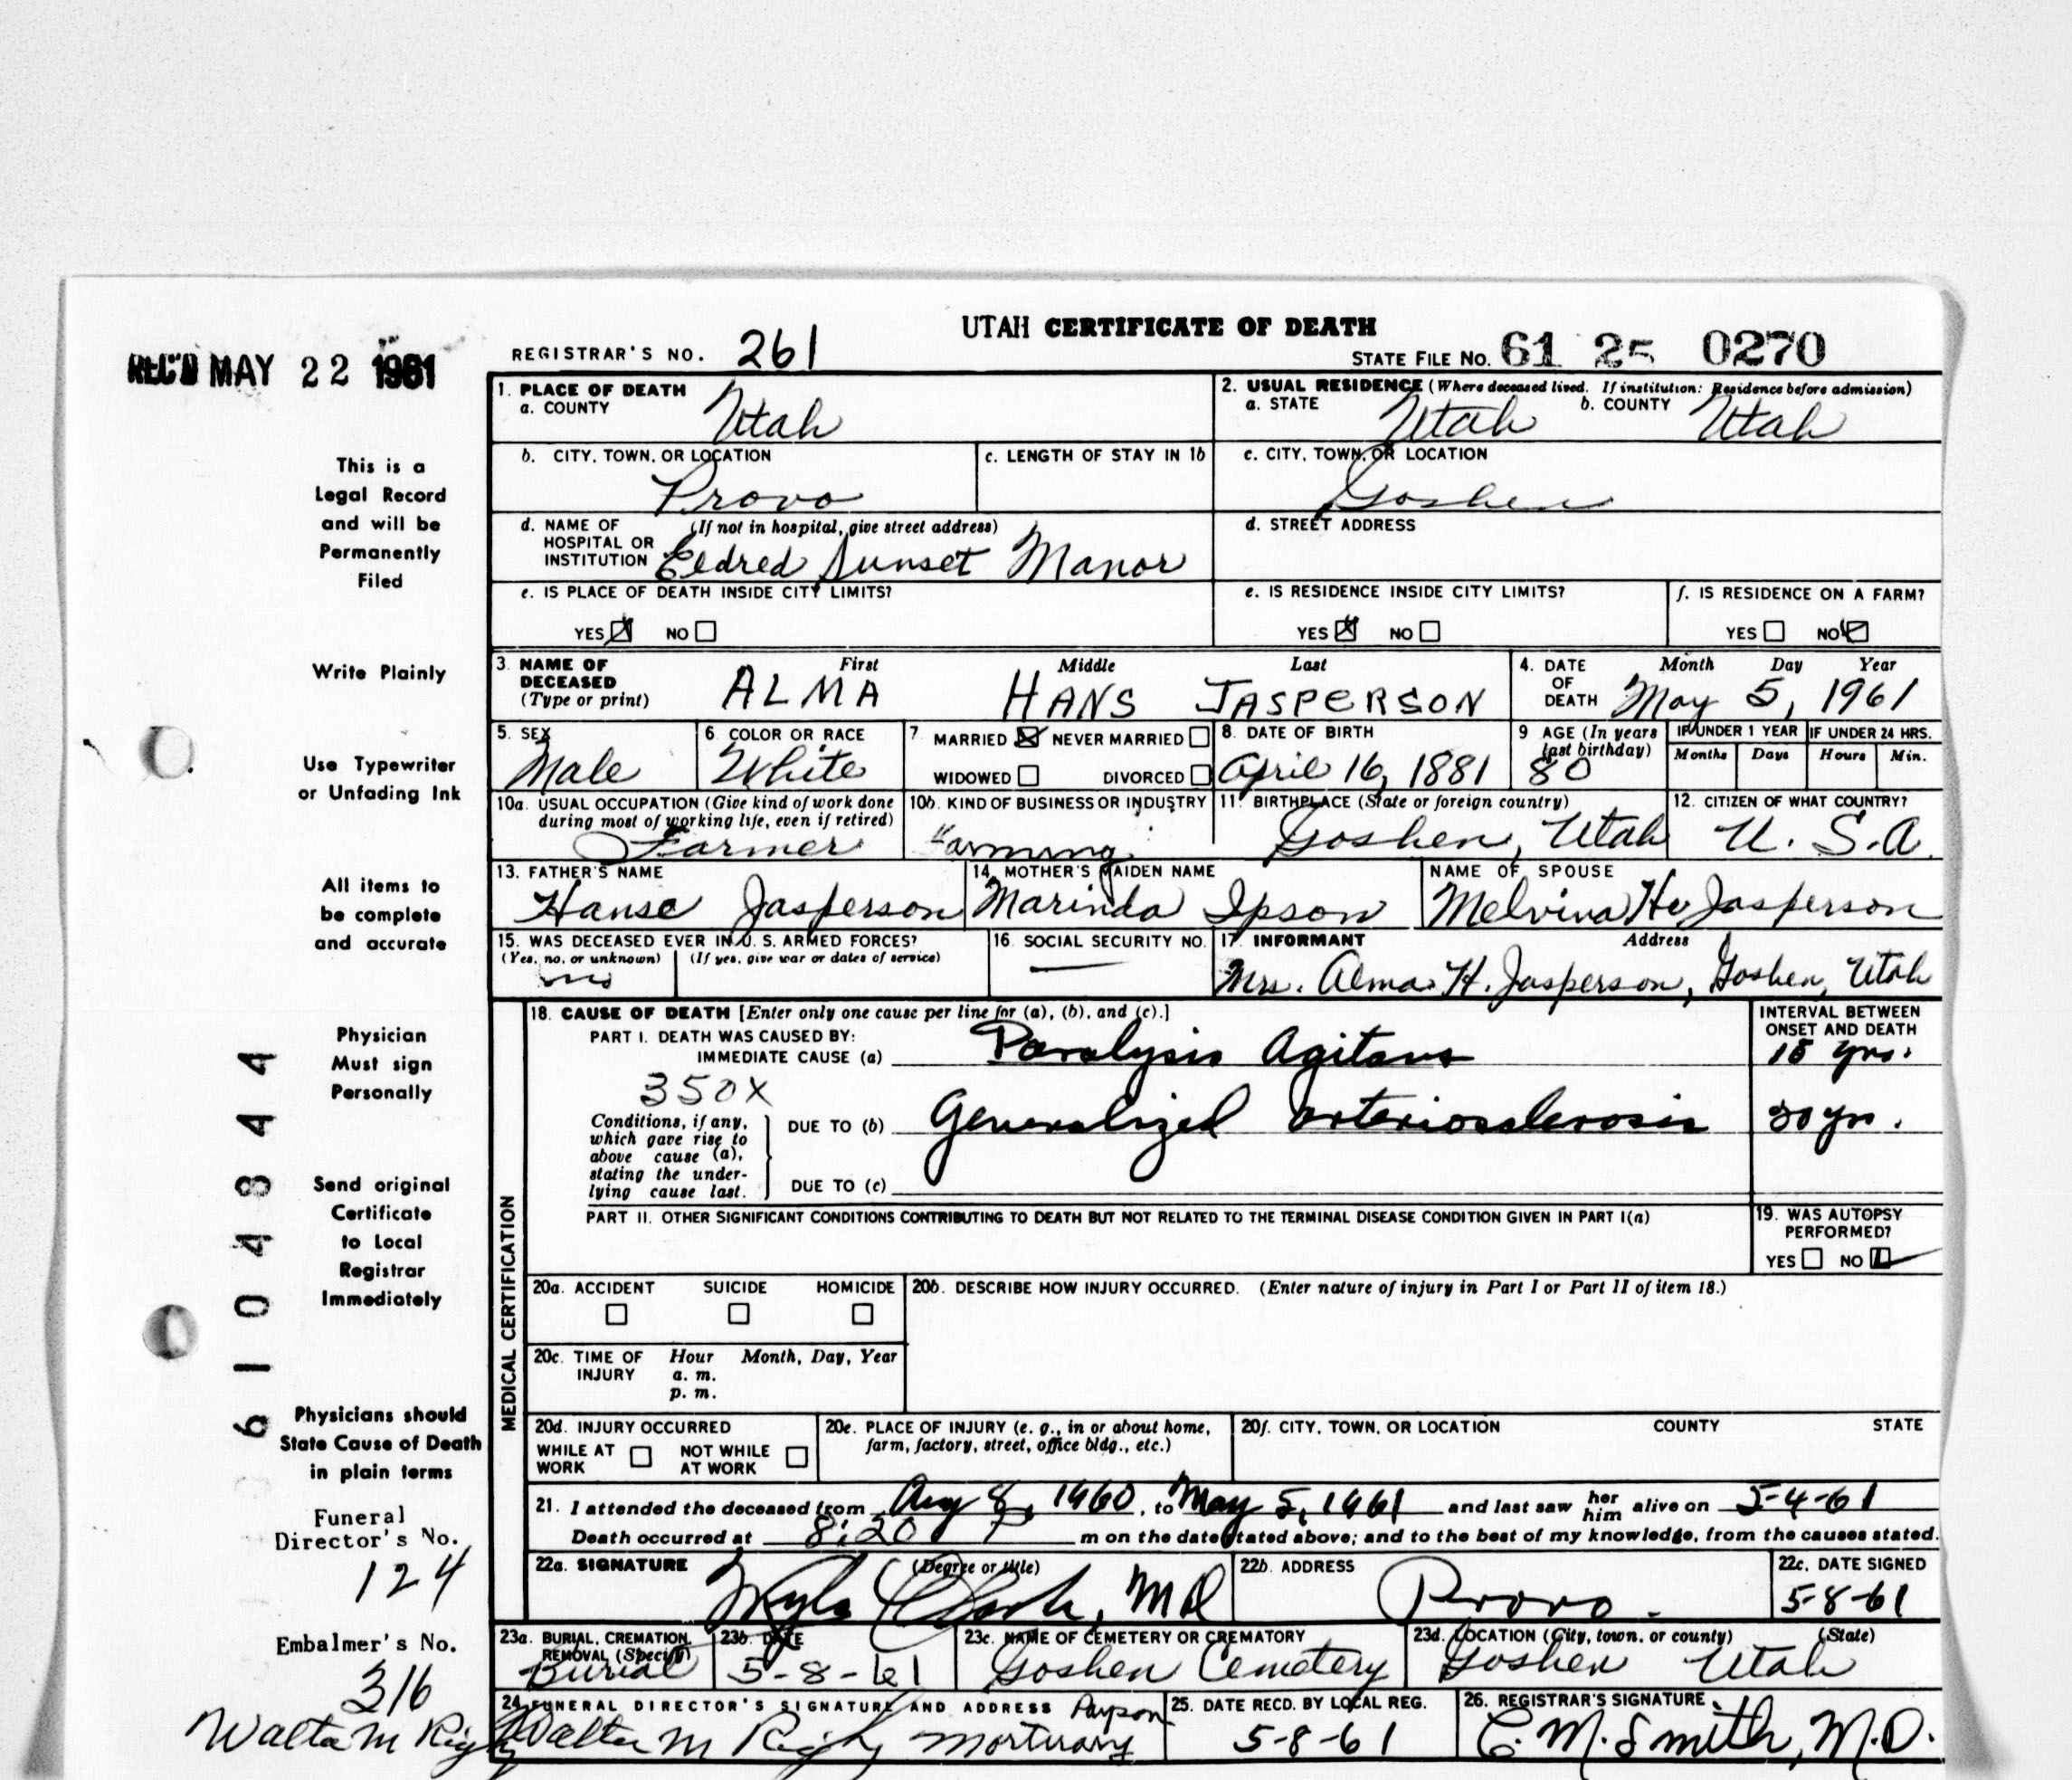 UTAH CERTIFICATE OF DEATH
REC'D MAY 22 1961
REGISTRAR'S NO. 261
STATE FILE NO. 61 25 0270
1. PLACE OF DEATH
a. COUNTY Utah
2. USUAL RESIDENCE (Where deceased lived. If institution: Residence before admission)
a. STATE Utah b. COUNTY Utah
b. CITY, TOWN, OR LOCATION Provo
c. LENGTH OF STAY IN 1b
c. CITY, TOWN, OR LOCATION Goshen
d. NAME OF HOSPITAL OR INSTITUTION (If not in hospital, give street address) Eldred Sunset Manor
d. STREET ADDRESS
e. IS PLACE OF DEATH INSIDE CITY LIMITS?
YES NO
e. IS RESIDENCE INSIDE CITY LIMITS?
YES NO
f. IS RESIDENCE ON A FARM?
YES NO
3. NAME OF DECEASED (Type or print)
First Middle Last
ALMA HANS JASPERSON
4. DATE OF DEATH
Month Day Year
May 5, 1961
5. SEX Male
6. COLOR OR RACE White
7. MARRIED NEVER MARRIED
WIDOWED DIVORCED
8. DATE OF BIRTH April 16, 1881
9 AGE (In years last birthday) 80
IF UNDER 1 YEAR
Months Days
IF UNDER 24 HRS.
Hours Min.
10a. USUAL OCCUPATION (Give kind of work done during most of working life, even if retired) Farmer
10b. KIND OF BUSINESS OR INDUSTRY Farming
11. BIRTHPLACE (State or foreign country) Goshen, Utah
12. CITIZEN OF WHAT COUNTRY? U. S. A.
13. FATHER'S NAME Hanse Jasperson
14. MOTHER'S MAIDEN NAME Marinda Ipson
NAME OF SPOUSE Melvina H. Jasperson
15. WAS DECEASED EVER IN U. S. ARMED FORCES?
(Yes, no, or unknown) (If yes, give war or dates of service)
no
16. SOCIAL SECURITY NO. —
17. INFORMANT Address
Mrs. Alma H. Jasperson, Goshen, Utah
MEDICAL CERTIFICATION
18. CAUSE OF DEATH [Enter only one cause per line for (a), (b), and (c).]
INTERVAL BETWEEN ONSET AND DEATH
PART I. DEATH WAS CAUSED BY:
IMMEDIATE CAUSE (a) Paralysis Agitans 15 yrs.
350X
Conditions, if any, which gave rise to above cause (a), stating the underlying cause last.
DUE TO (b) Generalized arteriosclerosis 20 yrs.
DUE TO (c)
PART II. OTHER SIGNIFICANT CONDITIONS CONTRIBUTING TO DEATH BUT NOT RELATED TO THE TERMINAL DISEASE CONDITION GIVEN IN PART I(a)
19. WAS AUTOPSY PERFORMED?
YES NO
20a. ACCIDENT SUICIDE HOMICIDE
20b. DESCRIBE HOW INJURY OCCURRED. (Enter nature of injury in Part I or Part II of item 18.)
20c. TIME OF INJURY
Hour Month, Day, Year
a. m.
p. m.
20d. INJURY OCCURRED
WHILE AT WORK NOT WHILE AT WORK
20e. PLACE OF INJURY (e. g., in or about home, farm, factory, street, office bldg., etc.)
20f. CITY, TOWN, OR LOCATION COUNTY STATE
21. I attended the deceased from Aug 8, 1960, to May 5, 1961 and last saw her him alive on 5-4-61
Death occurred at 8:20 P m on the date stated above; and to the best of my knowledge, from the causes stated.
22a. SIGNATURE (Degree or title) M D
22b. ADDRESS Provo.
22c. DATE SIGNED 5-8-61
23a. BURIAL, CREMATION, REMOVAL (Specify) Burial
23b. DATE 5-8-61
23c. NAME OF CEMETERY OR CREMATORY Goshen Cemetery
23d. LOCATION (City, town, or county) (State)
Goshen Utah
24. FUNERAL DIRECTOR'S SIGNATURE AND ADDRESS Payson
Walter M Rigby Mortuary
25. DATE RECD. BY LOCAL REG. 5-8-61
26. REGISTRAR'S SIGNATURE
C. M. Smith, M.D.
This is a
Legal Record
and will be
Permanently
Filed
Write Plainly
Use Typewriter
or Unfading Ink
All items to
be complete
and accurate
Physician
Must sign
Personally
Send original
Certificate
to Local
Registrar
Immediately
Physicians should
State Cause of Death
in plain terms
Funeral
Director's No.
124
Embalmer's No.
316
Walter M Rigby
6104844